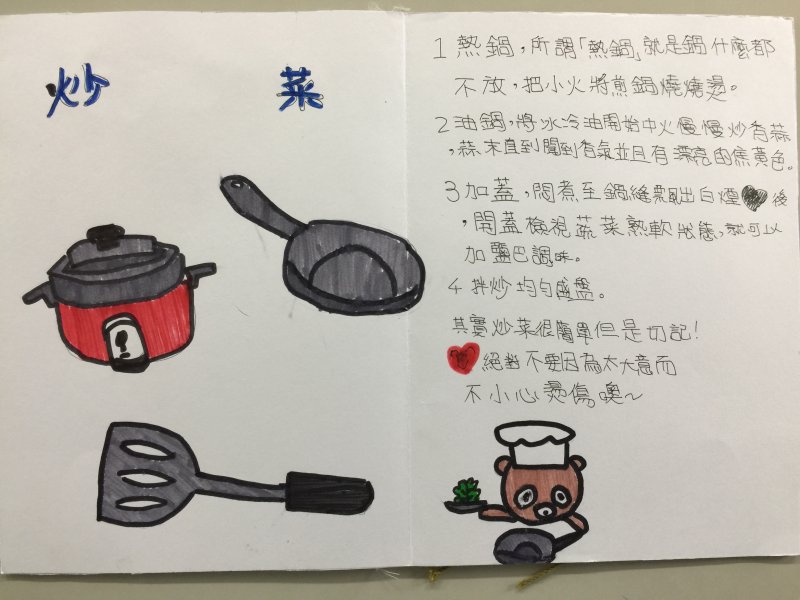 炒 菜
1 熱鍋，所謂「熱鍋」就是鍋什麼都
不放，把小火將煎鍋燒燒燙。
2 油鍋，將冰冷油開始中火慢慢炒香蒜
，蒜末直到聞到香氣並且有漂亮的焦黃色。
3 加蓋，悶煮至鍋縫飄出白煙後
，開蓋檢視蔬菜熟軟狀態，就可以
加鹽巴調味。
4 拌炒均勻盛盤。
其實炒菜很簡單但是切記！
絕對不要因為太大意而
不小心燙傷噢～